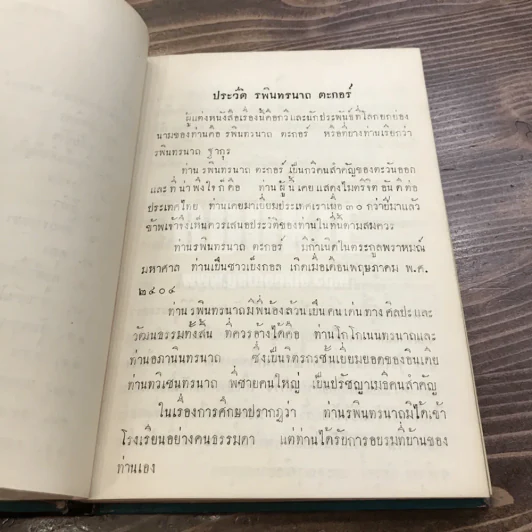 ประวัติ รพินทรนาถ ตะกอร์
ผู้แต่งหนังสือเรื่องนี้คือกวีและนักประพันธ์ที่โลกยกย่อง
นามของท่านคือ รพินทรนาถ ตะกอร์ หรือที่บางท่านเรียกว่า
รพินทรนาถ ฐากุร
ท่าน รพินทรนาถ ตะกอร์ เป็นกวีคนสำคัญของตะวันออก
และ ที่ น่า พึงใจ ก็ คือ ท่าน ผู้ นี้ เคย แสดง ไมตรีจิต อันดี ต่อ
ประเทศไทย ท่านเคยมาเยี่ยมประเทศเราเมื่อ ๓๐ กว่าปีมาแล้ว
ข้าพเจ้าจึงเห็นควรเสนอประวัติของท่านในที่นี้ตามสมควร
ท่านรพินทรนาถ ตะกอร์ มีกำเนิดในตระกูลพราหมณ์
มหาศาล ท่านเป็นชาวเบ็งกอล เกิดเมื่อเดือนพฤษภาคม พ.ศ.
๒๔๐๔
ท่าน รพินทรนาถมีพี่น้องล้วนเป็นคนเด่นทางศิลปะและ
วัฒนธรรมทั้งสิ้น ที่ควรอ้างได้คือ ท่านโกโกเนนทรนาถและ
ท่านอภานินทรนาถ ซึ่งเป็นจิตรกรชั้นเยี่ยมยอดของอินเดีย
ท่านทวิเชนทรนาถ พี่ชายคนใหญ่ เป็นปรัชญาเมธีคนสำคัญ
ในเรื่องการศึกษาปรากฏว่า ท่านรพินทรนาถมิได้เข้า
โรงเรียนอย่างคนธรรมดา แต่ท่านได้รับการอบรมที่บ้านของ
ท่านเอง